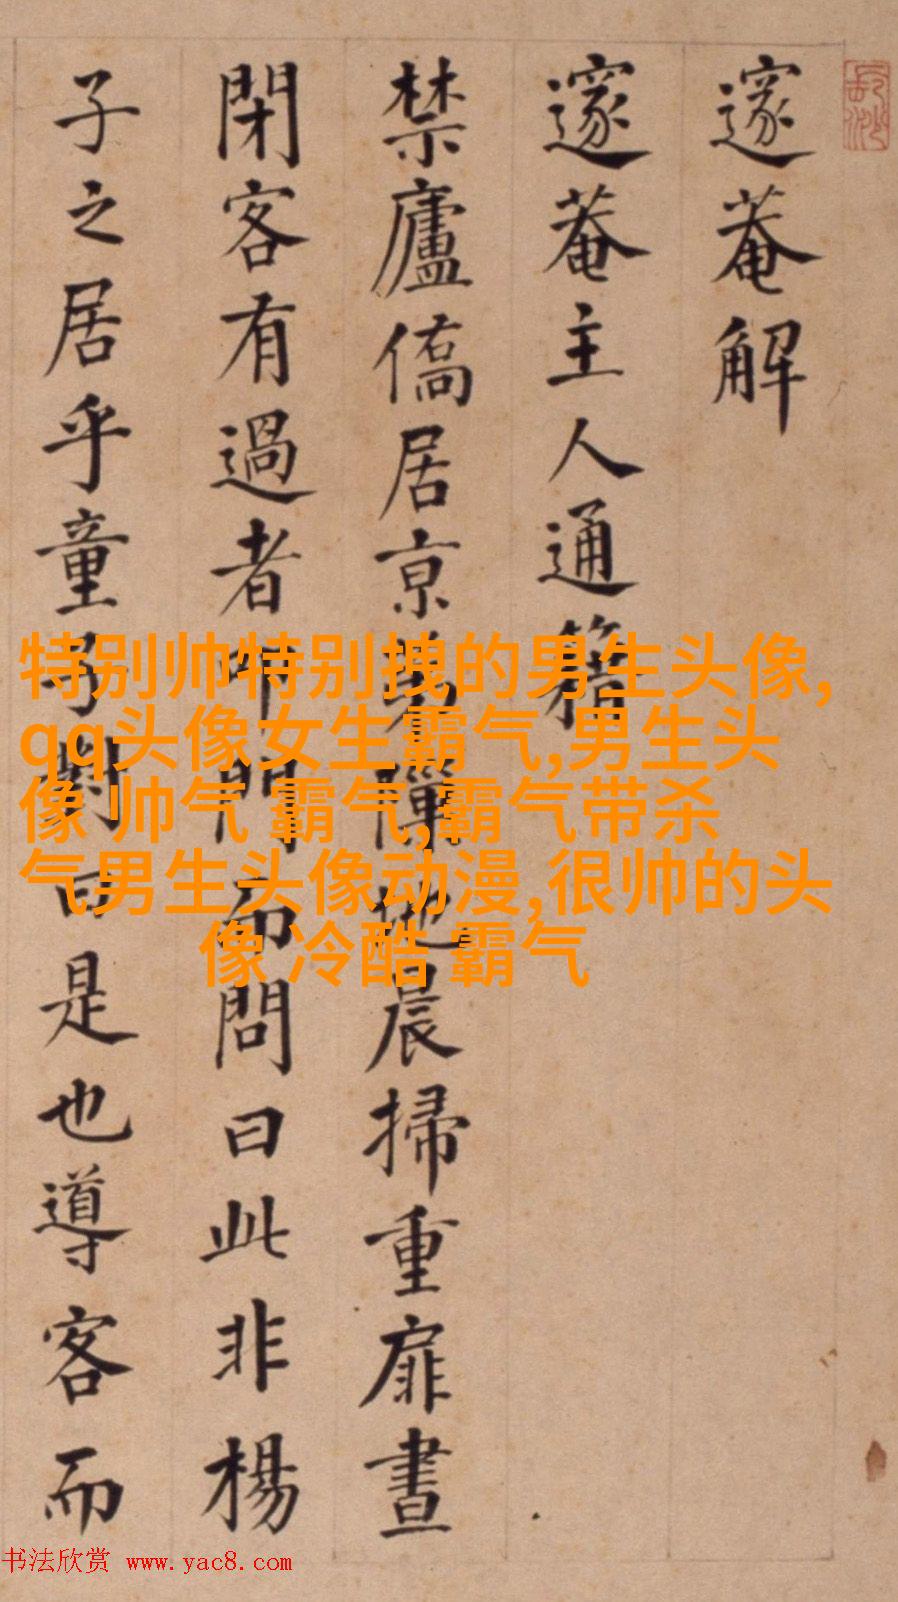 邃菴解
邃菴主人通籍
禁廬僑居京地晨掃重扉晝
閉客有過者叩門而問曰此非楊
子之居乎童子對曰是也導客而
特别帅特别拽的男生头像,
qq头像女生霸气,男生头
像 帅气 霸气,霸气带杀
气男生头像动漫,很帅的头
像 冷酷 霸气
书法欣赏 www.yac8.com